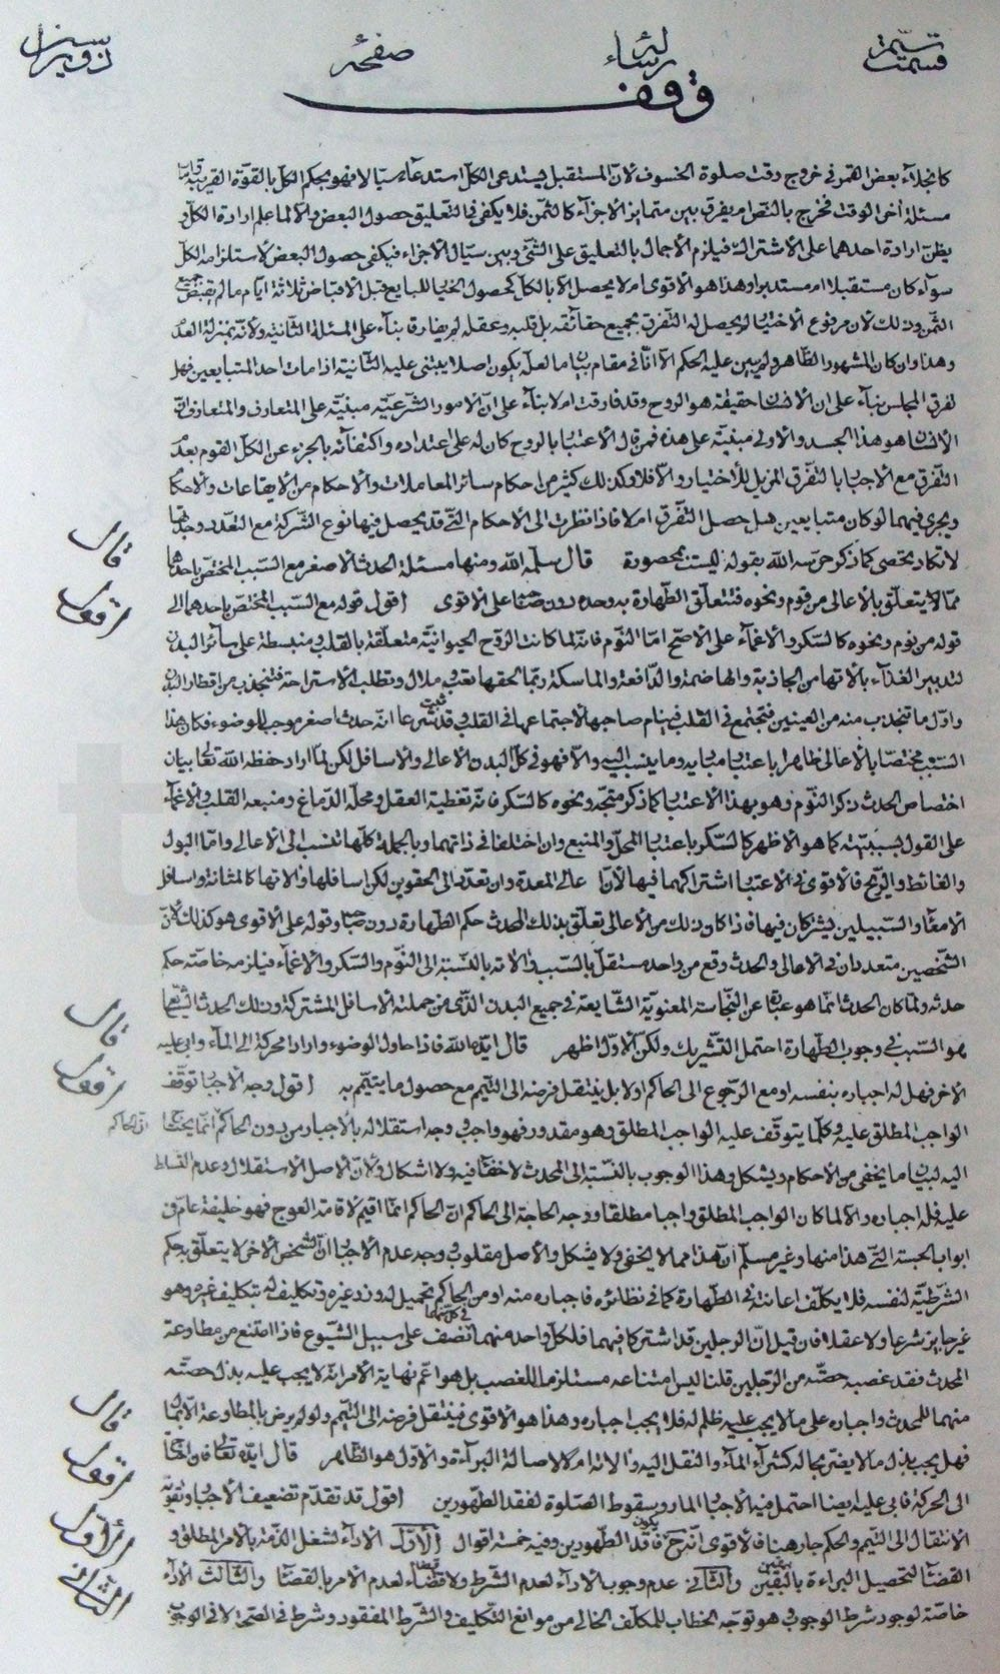 رسالة
صفحه
وقف
كانجلاء بعض القمر في خروج وقت صلوة الخسوف لان المستقبل يستدعى الكل استدعاء سيالا فهو بحكم الكل بالقوة القريبة
مسئلة اخر الوقت فخرج بالنص ام يفرق بين متمايز الاجزاء كالثمن فلا يكفى في التعليق حصول البعض والا لما علم ارادة الكل و
يظن ارادة احدهما على الاشتراك فيلزم الاجمال بالتعليق على الشئ وبين سيال الاجزاء فيكفى حصول البعض لاستلزامه الكل
سواء كان مستقبلا ام مستدبرا وهذا هو الاقوى ام لا يحصل الا بالكل كحصول الخيار للبايع قبل الاقباض ثلاثة ايام ما لم يقبض جميع
الثمن وذلك لان مرفوع الاختيار لم يحصل له التفرق بجميع حقائقه بل قلبه وعقله لم يفارقا بناء على المسئلة الثانية ولانه بمنزلة العدم
وهذا وان كان المشهور الظاهر ولم يبين عليه الحكم الا انا في مقام بيان ما لعله يكون اصلا يبتنى عليه الثانية اذا مات احد المتبايعين فهل
تفرق المجلس بناء على ان الانسان حقيقة هو الروح وقد فارقت ام لا بناء على ان الامور الشرعيه مبنية على المتعارف والمتعارف ان
الانسان هو هذا الجسد والاولى مبنية على هذه فمن قال الاعتبار بالروح كان له على اعتداده واكتفائه بالجزء عن الكل القوم بعدم
التفرق مع الاجبار بالتفرق المزيل للاختيار والا فلا وكذلك كثير من احكام سائر المعاملات والاحكام من الايقاعات والاحكام
ويجرى فيهما لو كان متبايعين هل حصل التفرق ام لا فاذا نظرت الى الاحكام التي قد يحصل فيها نوع الشركة مع التعدد وجدتها
لا تكاد تحصى كما ذكر حرسه الله بقوله ليست بمحصورة قال سلمه الله ومنها مسئلة الحدث الاصغر مع السبب المختص باحدهما
قال
مما لا يتعلق بالاعالى من قوم ونحوه فتتعلق الطهارة به وحده دون صاحبه على الاقوى اقول قوله مع السبب المختص باحدهما الى
اقول
قوله من نوم ونحوه كالسكر والاغماء على الاصح اما النوم فانه لما كانت الروح الحيوانية متعلقة بالقلب ومنبسطة على سائر البدن
لتدبير الغذاء بالاتها من الجاذبة والهاضمة والدافعة والماسكة ربما لحقها تعب وملال وتطلب الاستراحة فتنجذب من اقطار البدن
واول ما تنجذب منه من العينين فتجتمع في القلب فينام صاحبها لاجتماعها في القلب وقد ثبت شرعا انه حدث اصغر موجب للوضوء فكان هذا
السبب مختصا بالاعالى ظاهرا باعتبار مباديه وما ينسب اليه والا فهو في كل البدن الاعالى والاسافل لكن لما اراد حفظه الله تعالى بيان
اختصاص الحدث ذكر النوم وهو بهذا الاعتبار كما ذكر متجه ونحوه كالسكر فانه تغطية العقل ومحله الدماغ ومنبعه القلب والاغماء
على القول بسببيته كما هو الاظهر كالسكر باعتبار المحل والمنبع وان اختلفا في ذاتهما وبالجملة كلها تنسب الى الاعالى واما البول
والغائط والريح فالاقوى في الاعتبار اشتراكهما فيها لان اعالى المعدة وان تعدد الى الحقوين لكن اسافلها والاتها كالمثانة واسافل
الامعاء والسبيلين يشتركان فيها فاذا كان ذلك من الاعالى تعلق بذلك المحدث حكم الطهارة دون صاحبه وقوله على الاقوى هو كذلك لان
الشخصين متعددان في الاعالى والحدث وقع من واحد مستقل بالسبب والاته بالنسبة الى النوم والسكر والاغماء فيلزمه خاصة حكم
حدثه ولما كان الحدث انما هو عبارة عن النجاسة المعنوية الشايعة في جميع البدن الذي من جملته الاسافل المشتركة وذلك الحدث الشايع
هو السبب في وجوب الطهارة احتمل التشريك ولكن الاول اظهر قال ايده الله فاذا حاول الوضوء واراد المحركة الى الماء وابى عليه
قال
الاخر فهل له اجباره بنفسه او مع الرجوع الى الحاكم او لا بل ينتقل فرضه الى التيمم مع حصول ما يتيمم به اقول وجه الاجبار توقف
اقول
الواجب المطلق عليه وكلما يتوقف عليه الواجب المطلق وهو مقدور فهو واجب وجه استقلاله بالاجبار من دون الحاكم انما يحتاج
ان الحاكم
اليه لبيان ما يخفى من الاحكام ويشكل وهذا الوجوب بالنسبة الى المحدث لا خفاء فيه ولا اشكال ولان الاصل الاستقلال وعدم التسلط
عليه فله اجباره والا لما كان الواجب المطلق واجبا مطلقا ووجه الحاجة الى الحاكم ان الحاكم انما اقيم لاقامة العوج فهو خليفة عام في
ابواب الحسبة التي هذا منها وغير مسلم ان هذا مما لا يخفى ولا يشكل والاصل مقلوب وجه عدم الاجبار ان الشخص الاخر لا يتعلق به حكم
الشرطية لنفسه فلا يكلف اعانته في الطهارة كما في نظائره فاجباره منه او من الحاكم تحميل له وزر غيره وتكليف له بتكليف غيره وهو
غير جايز شرعا ولا عقلا فان قيل ان الرجلين قد اشتركا فيهما فلكل واحد منهما نصف في كل منهما على سبيل الشيوع فاذا امتنع من مطاوعة
المحدث فقد غصبه حصته من الرجلين قلنا ليس امتناعه مستلزما للغصب بل هو اعم نهاية الامر انه لا يجب عليه بذل حصته
منهما للمحدث واجباره على ما لا يجب عليه ظلم له فلا يجب اجباره وهذا هو الاقوى فينتقل فرضه الى التيمم ولو لم يرض بالمطاوعة الا بمال
فهل يجب بذل ما لا يضر بحاله كشراء الماء والنقل اليه والاته ام لا لاصالة البراءة والاول هو الظاهر قال ايده الله تعالى فان احتاج
قال
الى الحركة فابى عليه ايضا احتمل فيه الاجبار المار وسقوط الصلوة لفقد الطهورين اقول قد تقدم تضعيف الاجبار وتقوية
اقول
الانتقال الى التيمم والحكم جار هنا فالاقوى انه ح يكون فاقد الطهورين وفيه خمسة اقوال الاول الاداء لشغل الذمة بالامر المطلق و
الاول
القضاء لتحصيل البراءة باليقين بيقين والثاني عدم وجوب الاداء لعدم الشرط ولا قضاء لعدم الامر بالقضاء والثالث الاداء
الثاني
خاصة لوجود شرط الوجوب وهو توجه الخطاب للمكلف الخالى من موانع التكليف والشرط المفقود شرط في الصحة لا في الوجوب